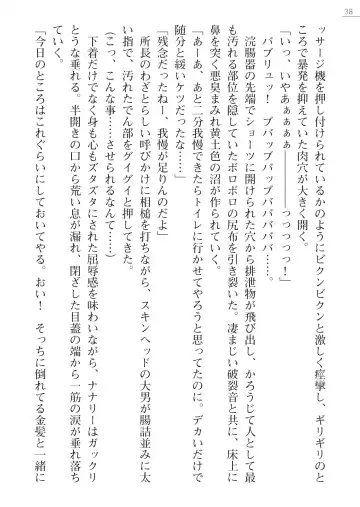 38
ッサージ機を押し付けられているかのようにビクンビクンと激しく痙攣し、ギリギリのと
ころで暴発を抑えていた肉穴が大きく開く。
「いっ、いやあぁぁぁぁ――っつっつっつ！」
ブバリュッ！　ブバッブバッブバババババ……。
浣腸器の先端でショーツに開けられた穴から排泄物が飛び出し、かろうじて人として最
も汚れる部位を隠していたボロボロの尻布を引き裂いた。凄まじい破裂音と共に、床上に
鼻を突く悪臭まみれ黄土色の沼が作られていく。
「あーあ、あと二分我慢できたらトイレに行かせてやろうと思ってたのに。デカいだけで
随分と緩いケツだったな……」
「残念だったねぇ、我慢が足りんのだよ」
所長のわざとらしい呼びかけに相槌を打ちながら、スキンヘッドの大男が腸詰並みに太
い指で、汚れたでん部をグイグイと押してきた。
（こっ、こんな事……させられるなんて……）
下着だけでなく身も心もズタズタにされた屈辱感を味わいながら、ナナリーはガックリ
とうな垂れる。半開きの口から荒い息が漏れ、閉ざした目蓋の端から一筋の涙が垂れ落ち
ていく。
「今日のところはこれぐらいにしておいてやる。おい！　そっちに倒れてる金髪と一緒に